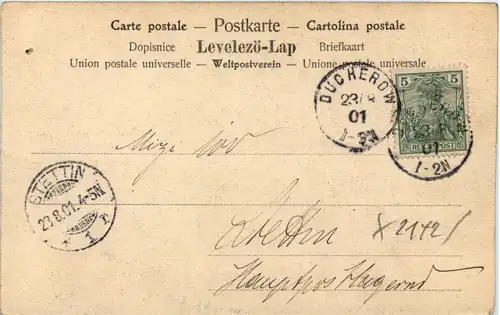 Carte postale — Postkarte — Cartolina postale
Dopisnice Levelezö-Lap Briefkaart
Union postale universelle — Weltpostverein — Unione postale universale
5 5
REICHSPOST
DUCHEROW
23/8
01
1-2N
DUCHEROW
23/8
01
1-2N
STETTIN
23.8.01.4-5N
* 1 r.
Stettin
Hauptpostlagernd